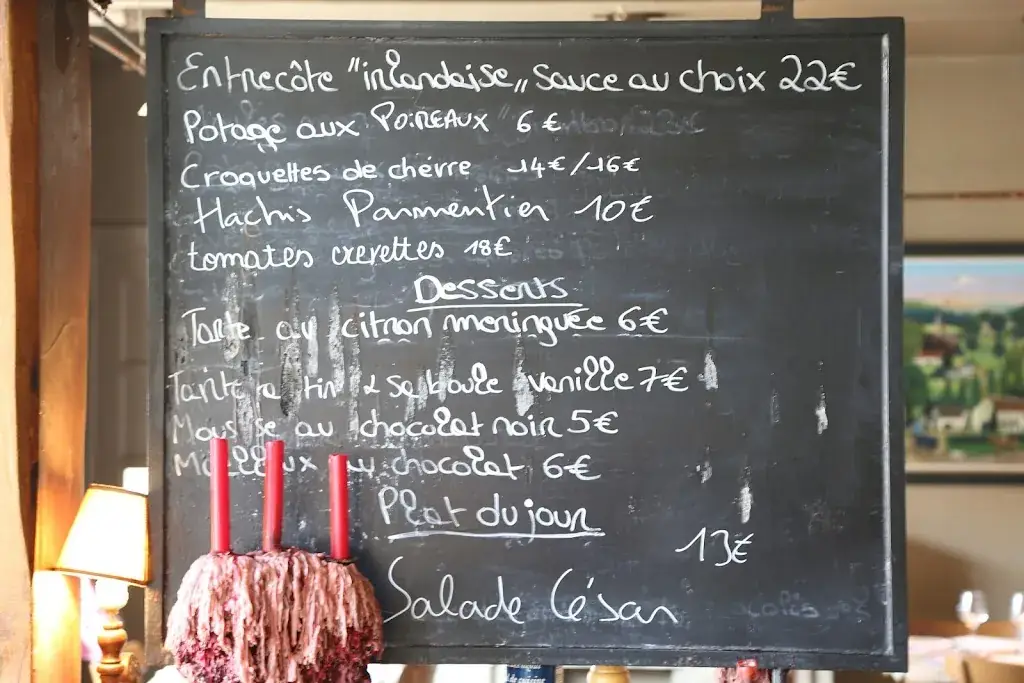 Entrecôte "irlandaise„ sauce au choix 22€
Potage aux POIREAUX 6 €
Croquettes de chèvre 14€/16€
Hachis Parmentier 10€
tomates crevettes 18€
Desserts
Tarte au citron meringuée 6€
Tarte tatin & sa boule vanille 7€
Mousse au chocolat noir 5€
Moelleux au chocolat 6€
Plat du jour
13€
Salade César